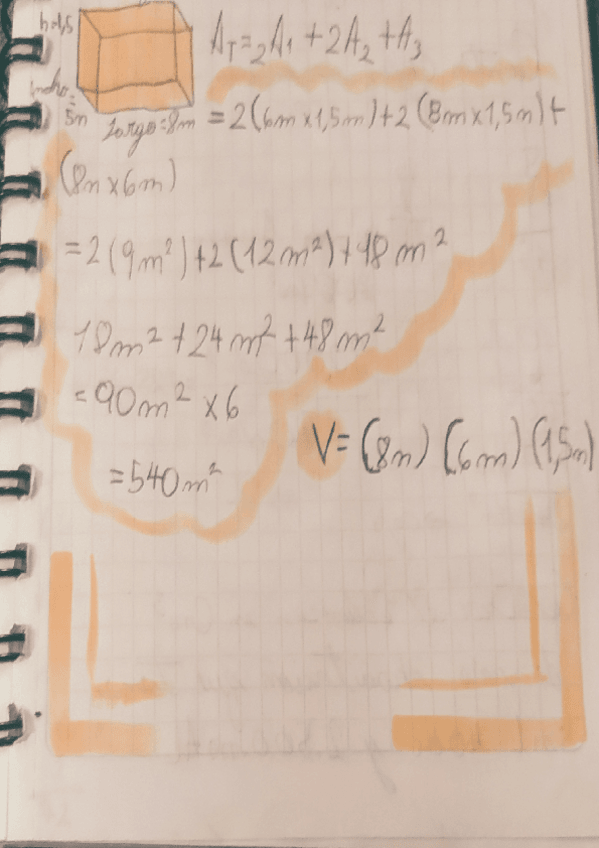 h=1,5
Ancho=
5m
Largo=8m
A_T=2A_1+2A_2+A_3
=2(6m x 1,5m)+2(8m x 1,5m)+
(8m x 6m)
=2(9m²)+2(12m²)+48m²
18m²+24m²+48m²
=90m² x 6
=540m²
V=(8m)(6m)(1,5m)